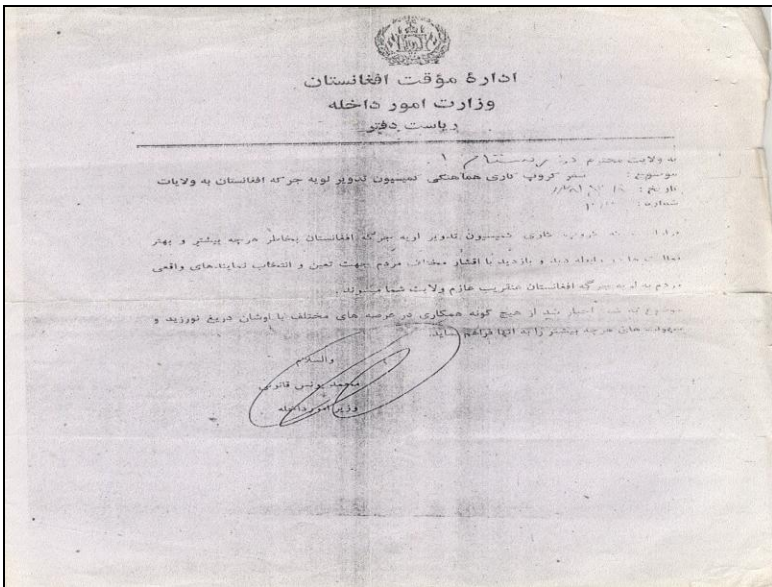 ادارۀ مؤقت افغانستان
وزارت امور داخله
ریاست دفتر
به ولایت محترم
موضوع : سفر گروپ کاری هماهنگی کمیسیون تدویر لویه جرگه افغانستان به ولایات
تاریخ :
شماره :
کاری کمیسیون تدویر لویه جرگه افغانستان بخاطر هرچه بیشتر و بهتر
دید و بازدید با اقشار مختلف مردم جهت تعین و انتخاب نمایندهای واقعی
مردم به لویه جرگه افغانستان عنقریب عازم ولایت شما میشوند .
موضوع به شما اخبار شد از هیچ گونه همکاری در عرصه های مختلف با اوشان دریغ نورزید و
سهولت های هرچه بیشتر را به آنها فراهم نماید.
والسلام
محمد یونس قانونی
وزیر امور داخله